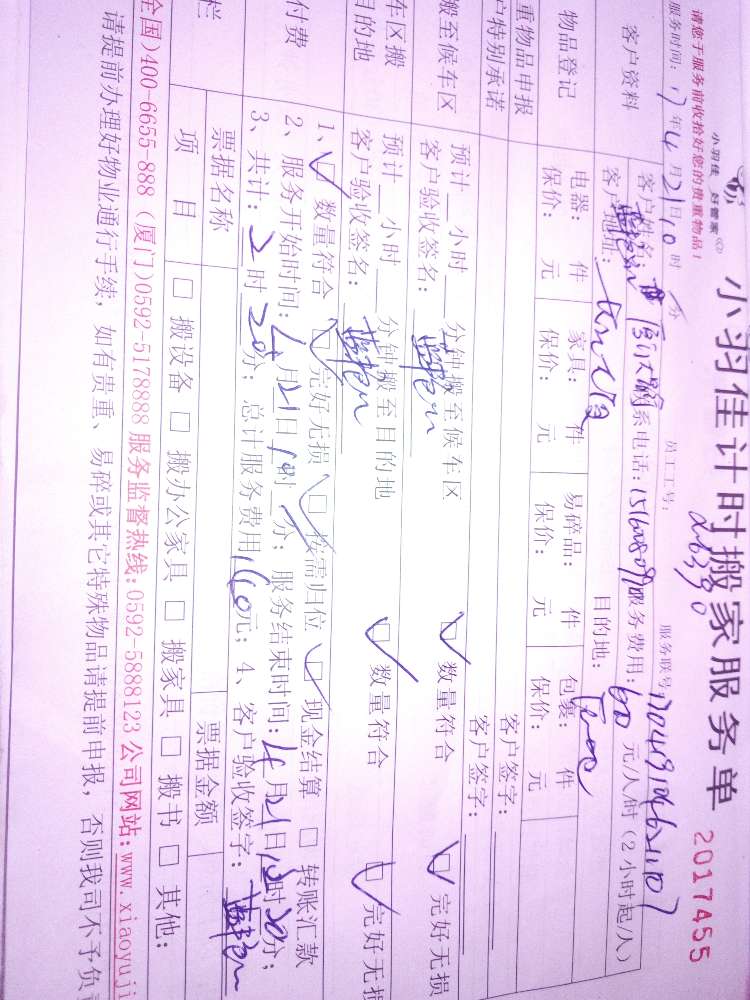 小羽佳 好管家
小羽佳计时搬家服务单 2017455
请您于服务前收拾好您的贵重物品!
服务时间: 17年4月21日10时 分 员工工号: 服务联号:
客户资料 客户姓名: 联系电话: 服务费用: 60元/人/时(2小时起/人)
客户地址: 目的地:
物品登记 电器: 件 家具: 件 易碎品: 件 包裹: 件
保价: 元 保价: 元 保价: 元 保价: 元
重物品申报 客户签字:
户特别承诺 客户签字:
搬至候车区 预计 小时 分钟搬至候车区 □ 数量符合 □ 完好无损
客户验收签名:
车区搬目的地 预计 小时 分钟搬至目的地 □ 数量符合 □ 完好无损
客户验收签名:
付费 1、□ 数量符合 □ 完好无损 □ 按需归位 □ 现金结算 □ 转账汇款
2、服务开始时间: 4月21日 时 分; 服务结束时间: 4月21日 时30分;
3、共计: 2时20分; 总计服务费用160元; 4、客户验收签字:
栏 票据名称 票据金额
项目 □ 搬设备 □ 搬办公家具 □ 搬家具 □ 搬书 □ 其他:
全国)400-6655-888 (厦门)0592-5178888 服务监督热线:0592-5888123 公司网站:www.xiaoyuji
请提前办理好物业通行手续, 如有贵重、易碎或其它特殊物品请提前申报, 否则我司不予负